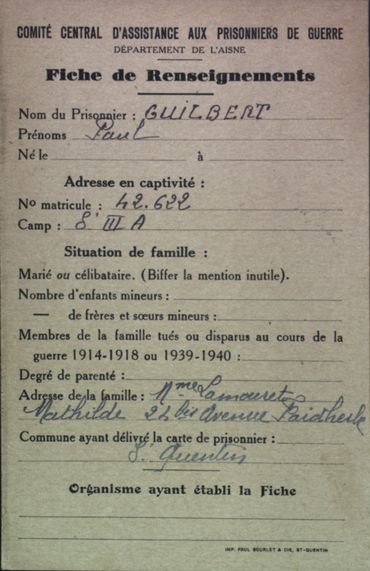 COMITÉ CENTRAL D'ASSISTANCE AUX PRISONNIERS DE GUERRE
DÉPARTEMENT DE L'AISNE
Fiche de Renseignements
Nom du Prisonnier : GUILBERT
Prénoms Paul
Né le à
Adresse en captivité :
No matricule : 42.622
Camp : S' III A
Situation de famille :
Marié ou célibataire. (Biffer la mention inutile).
Nombre d'enfants mineurs :
— de frères et sœurs mineurs :
Membres de la famille tués ou disparus au cours de la
guerre 1914-1918 ou 1939-1940 :
Degré de parenté :
Adresse de la famille : Mme Lamouret
Mathilde bis Avenue Faidherbe
Commune ayant délivré la carte de prisonnier :
St Quentin
Organisme ayant établi la Fiche
IMP. PAUL BOURLET & CIE, ST-QUENTIN